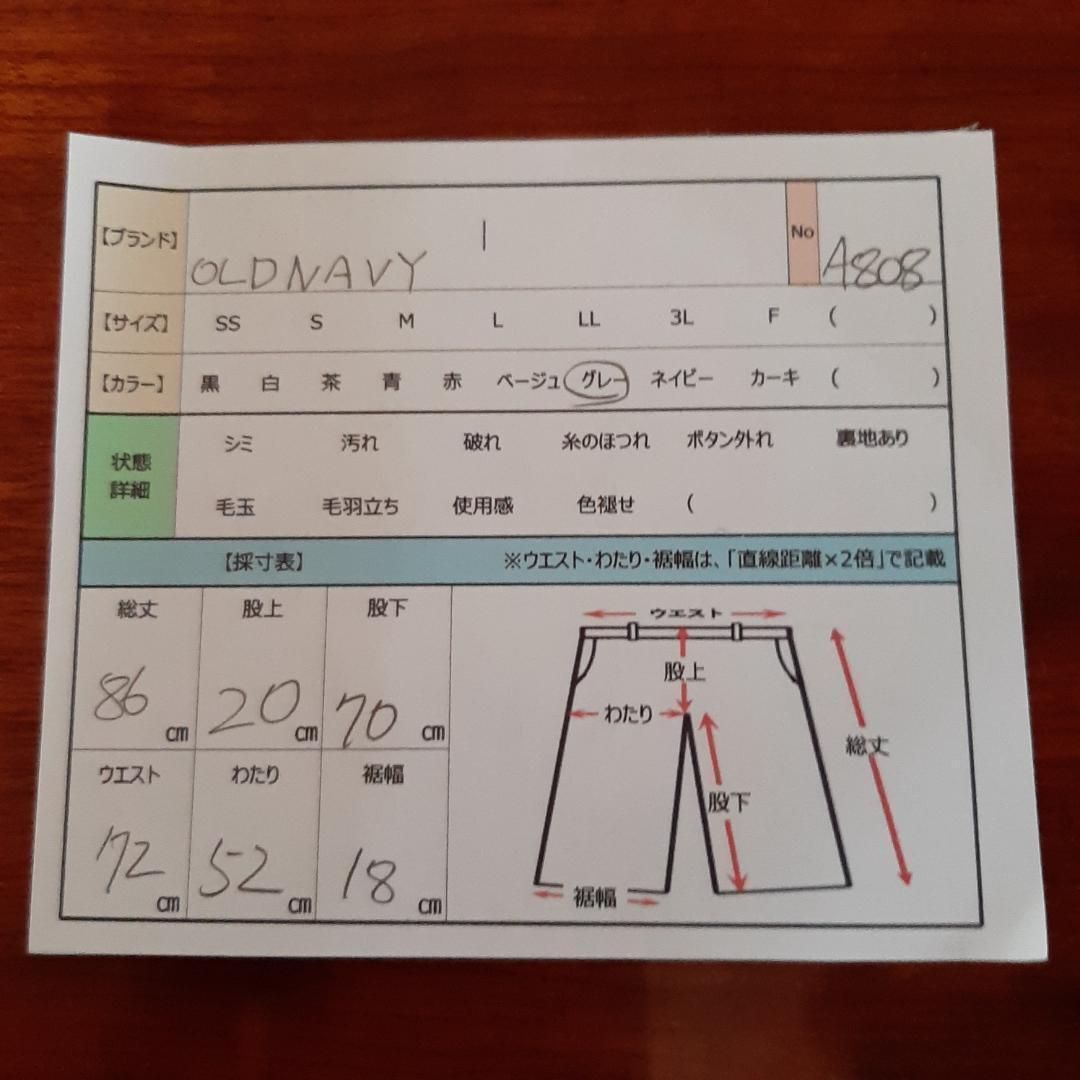 【ブランド】 OLD NAVY No A808
【サイズ】 SS S M L LL 3L F ( )
【カラー】 黒 白 茶 青 赤 ベージュ グレー ネイビー カーキ ( )
状態
詳細
シミ 汚れ 破れ 糸のほつれ ボタン外れ 裏地あり
毛玉 毛羽立ち 使用感 色褪せ ( )
【採寸表】 ※ウエスト・わたり・裾幅は、「直線距離×2倍」で記載
総丈 股上 股下
86 cm 20 cm 70 cm
ウエスト わたり 裾幅
72 cm 52 cm 18 cm
ウエスト
股上
わたり
総丈
股下
裾幅